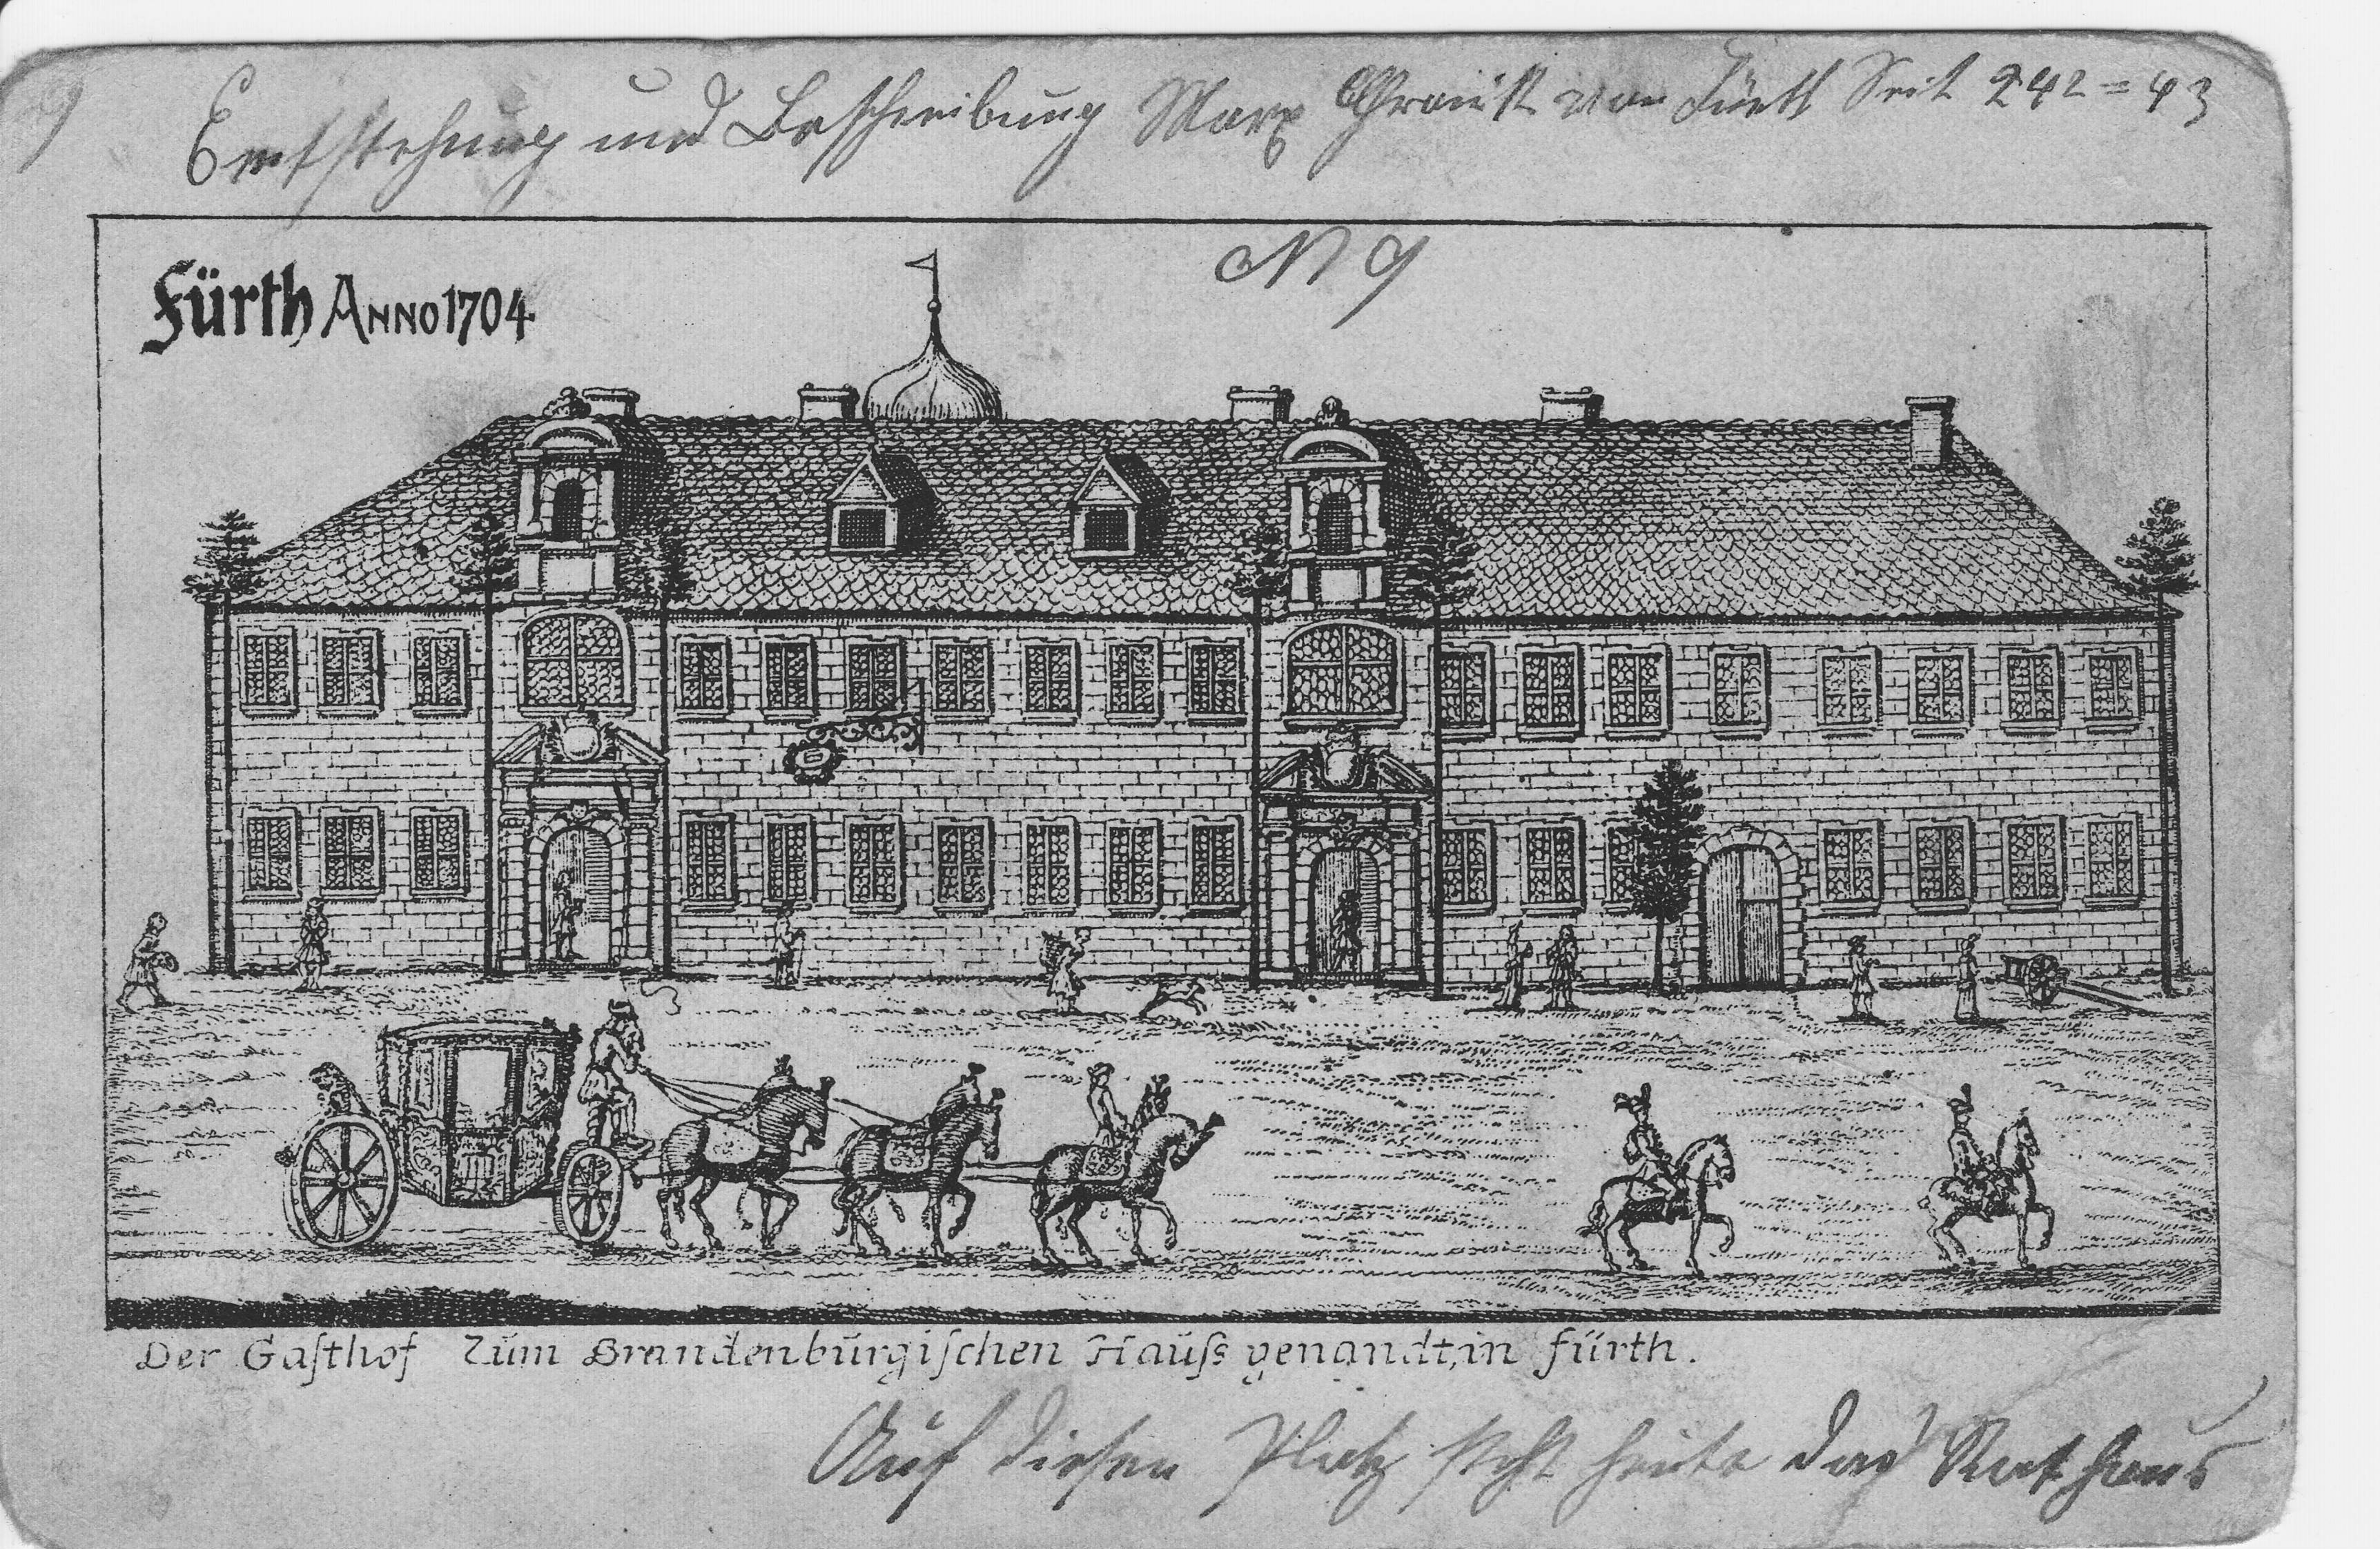 9
Entstehung und Beschreibung Marx Chronik von Fürth Seit 242=43
N 9
Fürth ANNO 1704
Der Gaſthof Zum Brandenburgiſchen Hauſs genandt, in fürth.
Auf diesen Platz steht heute das Rathaus